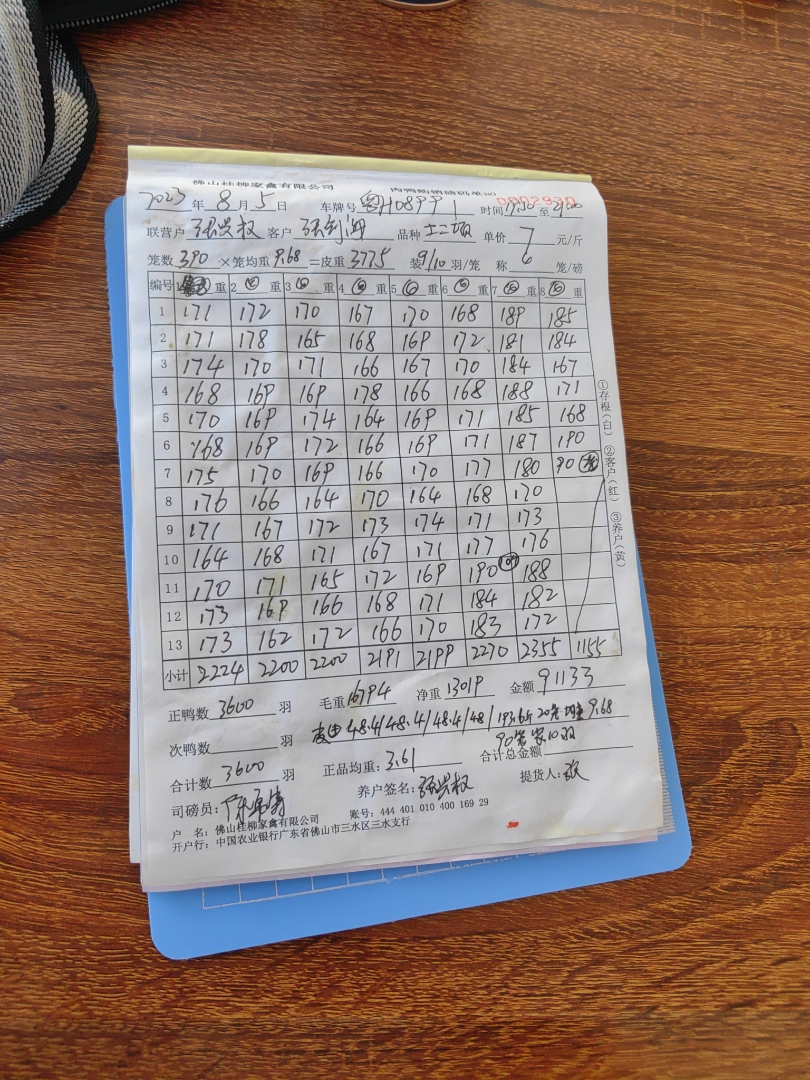 佛山桂柳家禽有限公司 肉鸭购销磅码单
2023 年 8 月 5 日 车牌号 粤H08991 时间 至
联营户 张兴权 客户 张剑海 品种 单价 7 元/斤
笼数 390 ×笼均重 9.68 =皮重 3775 装 9/10 羽/笼 称 6 笼/磅
编号 1 重 2 重 3 重 4 重 5 重 6 重 7 重 8 重
1 171 172 170 167 170 168 189 185
2 171 178 165 168 169 172 181 184
3 174 170 171 166 167 170 184 167
4 168 169 169 178 166 168 188 171
5 170 169 174 164 169 171 185 168
6 168 169 172 166 169 171 187 190
7 175 170 169 166 170 177 180 90
8 176 166 164 170 164 168 170
9 171 167 172 173 174 171 173
10 164 168 171 167 171 177 176
11 170 171 165 172 169 190 188
12 173 169 166 168 171 184 182
13 173 162 172 166 170 183 172
小计 2224 2200 2200 2191 2199 2270 2355 1155
正鸭数 3600 羽 毛重 16794 净重 13019 金额 91133
次鸭数 羽 48.4/48.4/48.4/48/193.6斤 20笼 均重 9.68
90笼装10羽
合计数 3600 羽 正品均重: 3.61 合计总金额
司磅员: 养户签名: 张兴权 提货人:
户 名: 佛山桂柳家禽有限公司 账号: 444 401 010 400 169 29
开户行: 中国农业银行广东省佛山市三水区三水支行
①存根(白) ②客户(红) ③养户(黄)